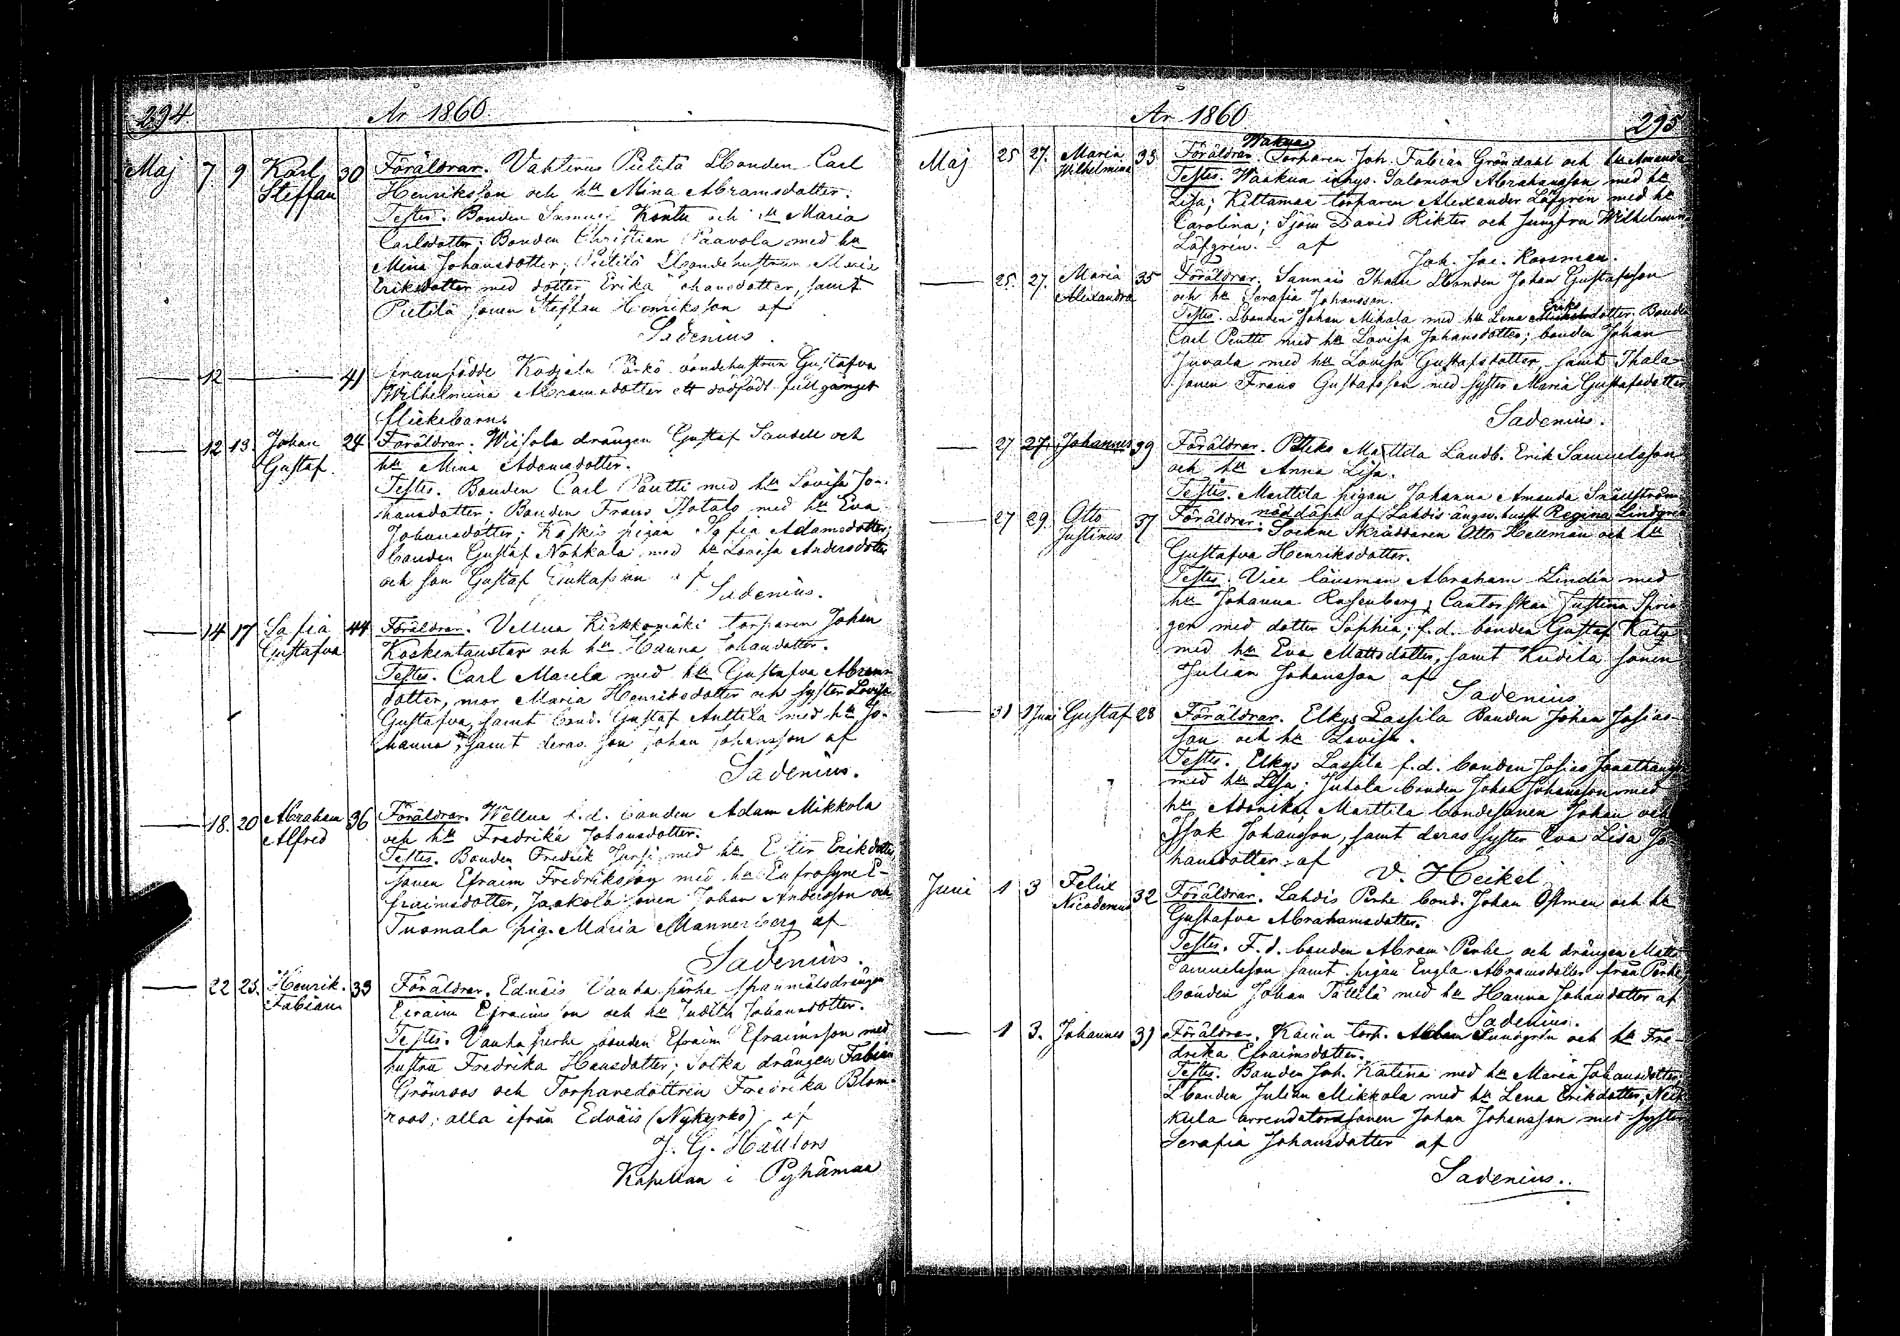 294
År 1860
Maj 7 9 Karl 30 Föräldrar. Vahterus Pietilä Lbonden Carl
Steffan Henriksson och hu Mina Abramsdotter.
Testes. Bonden Samuel Kontu och hu Maria
Carlsdotter; Bonden Christian Paavola med hu
Mina Johansdotter; Pietilä Lbondehustrun Maria
Eriksdotter med dotter Erika Johansdotter, samt
Pietilä sonen Steffan Henriksson af
Sadenius.
— 12 — — 41 framfödde Kodjala bondehustrun Gustafva
Wilhelmina Abramsdotter ett dödfödt fullgånget
flickebarn.
— 12 13 Johan 24 Föräldrar. drängen Gustaf Sandell och
Gustaf. hu Mina Adamsdotter.
Testes. Bonden Carl Pentti med hu Lovisa Jo-
hansdotter; Bonden Frans Isotalo med hu Eva
Johansdotter; pigan Sofia Adamsdotter;
bonden Gustaf Nohkala med hu Lovisa Andersdotter
och son Gustaf Gustafsson af
Sadenius.
— 14 17 Sofia 44 Föräldrar. Vellua Kirkkomäki torparen Johan
Gustafva Koskentaustar och hu Hanna Johansdotter.
Testes. Carl Marila med hu Gustafva Abrams
dotter, mor Maria Henriksdotter och syster Lovisa
Gustafva, samt bond. Gustaf Anttila med hu Jo-
hanna, samt deras son Johan Johansson af
Sadenius.
— 18. 20 Abraham 36 Föräldrar. Wellua f.d. bonden Adam Mikkola
Alfred och hu Fredrika Johansdotter.
Testes. Bonden Fredrik med hu Ester Eriksdotter
sonen Efraim Fredriksson med hu Eufrosyne E-
fraimsdotter, Jaakola sonen Johan Andersson och
Tuomala pig. Maria Mannerberg af
Sadenius.
— 22 23. Henrik. 33 Föräldrar. Edväis Vanha perhe spanmålsdrängen
Fabian Efraim Efraimsson och hu Judith Johansdotter.
Testes. Vanhaperhe bonden Efraim Efraimsson med
hustru Fredrika Hansdotter; drängen Fabian
Grönroos och Torparedottren Fredrika Blom-
roos; alla ifrån Edväis (Nykyrko) af
J. G. Hällfors
Kapellan i Pyhämaa
År 1860
295
Wakua
Maj 25 27. Maria 33 Föräldrar. Torparen Joh. Fabian Gröndahl och hu Amanda
Wilhelmina Testes. Waakua inhys. Salomon Abrahamsson med hu
Lisa; Kiltamaa torparen Alexander Löfgren med hu
Carolina; Sjöm David Rikter och Jungfru Wilhelmina
Löfgren. af
Joh. Jac. Roosman.
— 25. 27. Maria 35 Föräldrar. Sannais Thala Lbonden Johan Gustafsson
Alexandra och hu Serafia Johansson.
Eriks
Testes. Lbonden Johan Mikola med hu Lena dotter; Bonden
Carl Pentti med hu Lovisa Johansdotter; bonden Johan
Juvala med hu Lovisa Gustafsdotter, samt Thala
sonen Frans Gustafsson med syster Maria Gustafsdotter
Sadenius.
— 27 27. Johannes 39 Föräldrar. Marttila Landb. Erik Samuelsson
och hu Anna Lisa.
Testes. Marttila pigan Johanna Amanda Snällström
nöddöpt af Lahdis ängsv. hustr. Regina Lindgren
— 27 29. Otto 37 Föräldrar. Sockne Skräddaren Otto Hellman och hu
Justinus Gustafva Henriksdotter.
Testes. Vice länsman Abraham Lindén med
hu Johanna Rosenberg, Cantorskan Justina Sprin
gen med dotter Sophia; f.d. bonden Gustaf Katu
med hu Eva Mattsdotter, samt sonen
Julian Johansson af
Sadenius
— 31 1 Juni Gustaf 28 Föräldrar. Elkys Lassila Bonden Johan Josias-
son och hu Lovisa.
Testes. Elkys Lassila f.d. bonden Josias Jonathans
med hu Lisa; Juhola bonden Johan Johansson med
hu Marttila bondesonen Johan och
Isak Johansson, samt deras syster Eva Lisa Jo
hansdotter af
V. Heikel.
Juni 1 3 Felix 32 Föräldrar. Lahdis Perhe bond. Johan Östman och hu
Nicodemus Gustafva Abrahamsdotter.
Testes. F.d. bonden Abram Perhe och drängen Matts
Samuelsson samt pigan Engla Abramsdotter från Perhe
bonden Johan Tättilä med hu Hanna Johansdotter af
Sadenius.
— 1 3. Johannes 31 Föräldrar. torp. Sundgrén och hu Fre-
drika Efraimsdotter.
Testes. Bonden Joh. Katena med hu Maria Johansdotter;
Lbonden Julian Mikkola med hu Lena Eriksdotter,
kula arrendatorssonen Johan Johansson med syster
Serafia Johansdotter af
Sadenius..